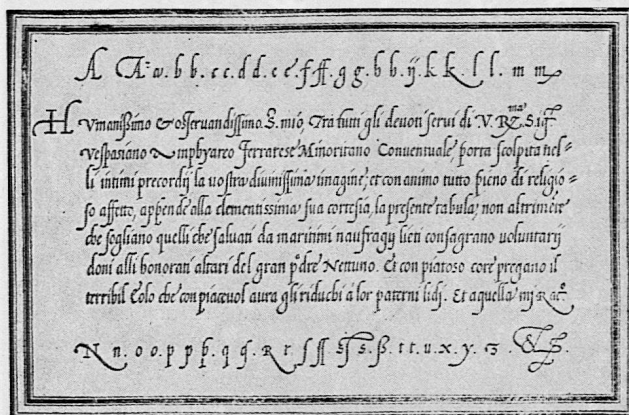 A A a . b b . c c . d d . e e . f ff . g g . h h . ij . k k . l l . m m
Humanißimo & osservandissimo . S . mio, Tra tutti gli devoti servi di V. R.ma S. sig.
vespasiano Amphyareo Ferrarese Minoritano Conventuale, porta scolpita nel=
li intimi precordij la vostra divinissima imagine; et con animo tutto pieno di religio=
so affetto, appende alla clementissima sua cortesia, la presente tabula; non altrimēte
che sogliano quelli che salvati da maritimi naufragij lieti consagrano voluntarij
doni alli honorati altari del gran padre Nettuno. Et con piatoso core pregano il
terribil Eolo che con piacevol aura gli riduchi à lor paterni lidj. Et a quella mj Rac.
N n . o o . p p p . q q . R r . ſ ſſ ss s . ß . t t . u . x . y . z . & .